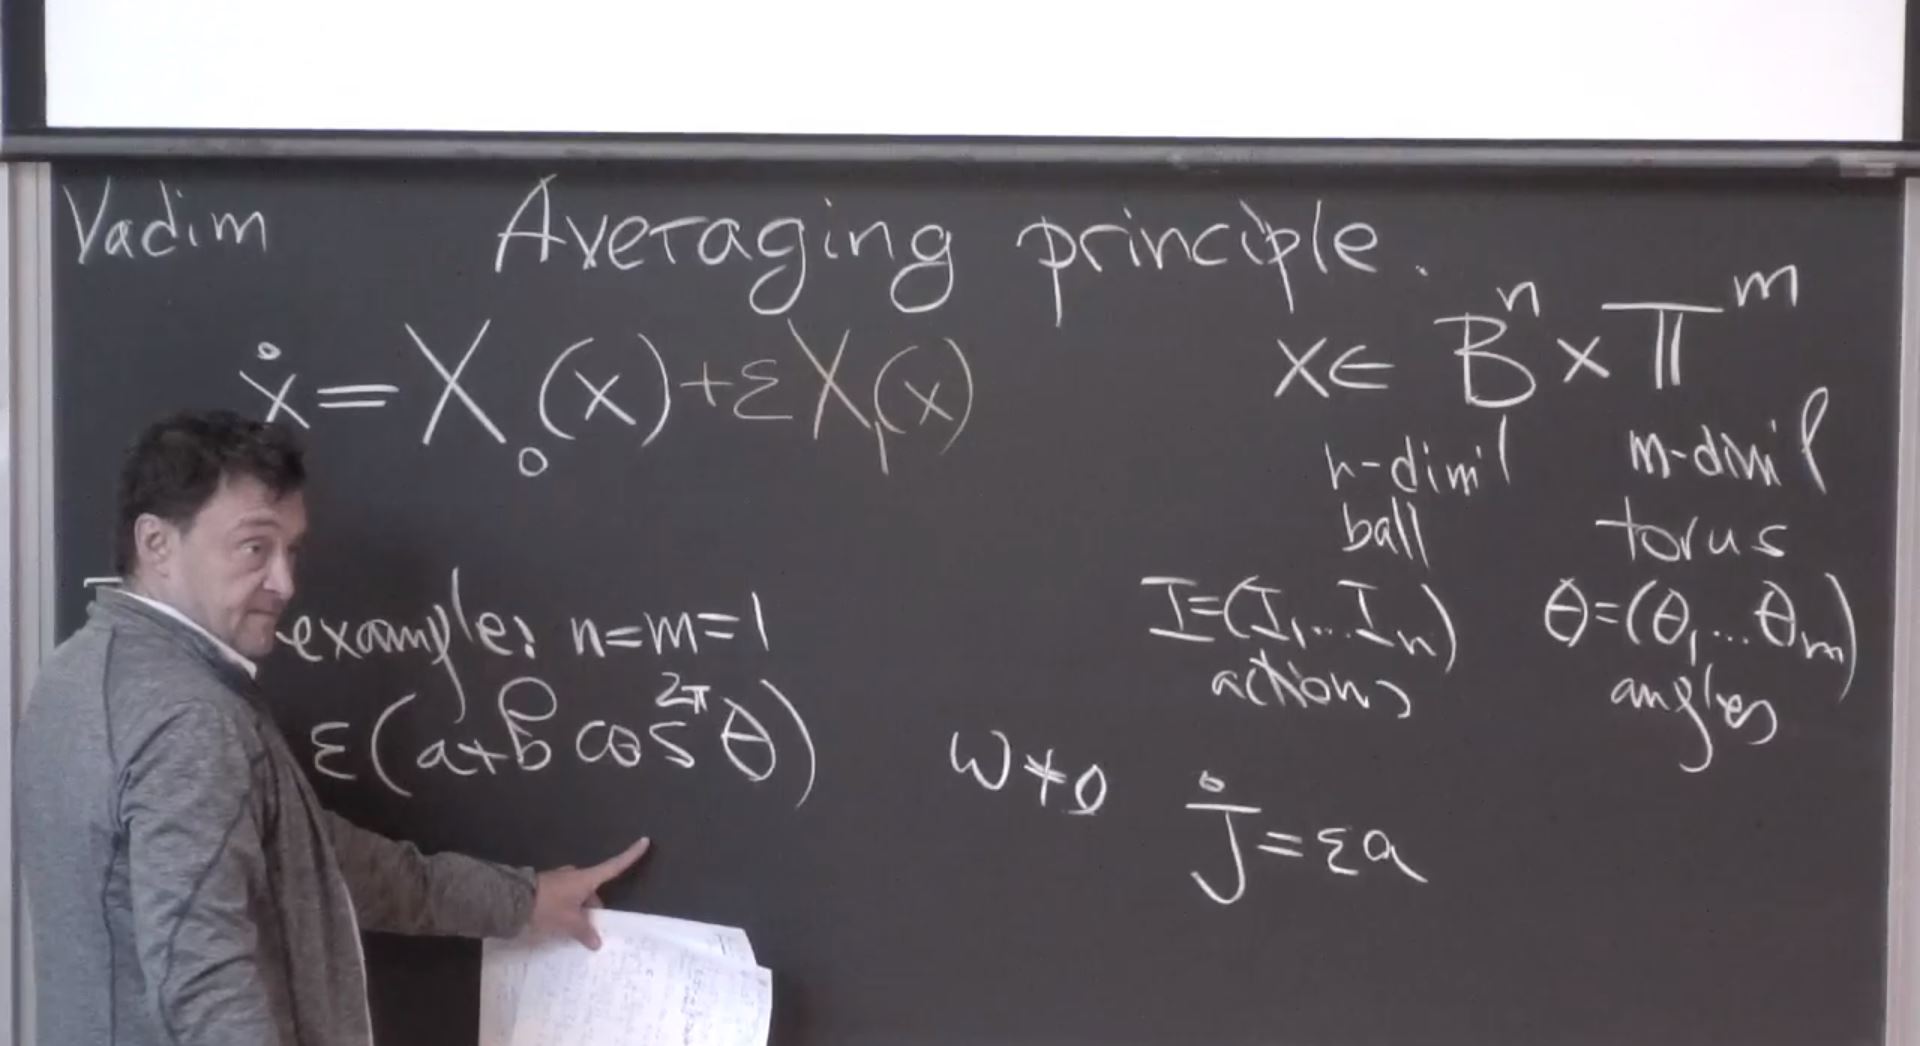 Vadim Averaging principle.
ẋ = X₀(x) + εX₁(x)
x ∈ Bⁿ × 𝕋ᵐ
n-dim'l ball
m-dim'l torus
I=(I₁...Iₙ) actions
θ=(θ₁...θₘ) angles
example: n=m=1
ε(a+b cos 2π θ)
ω≠0
J̇=εa